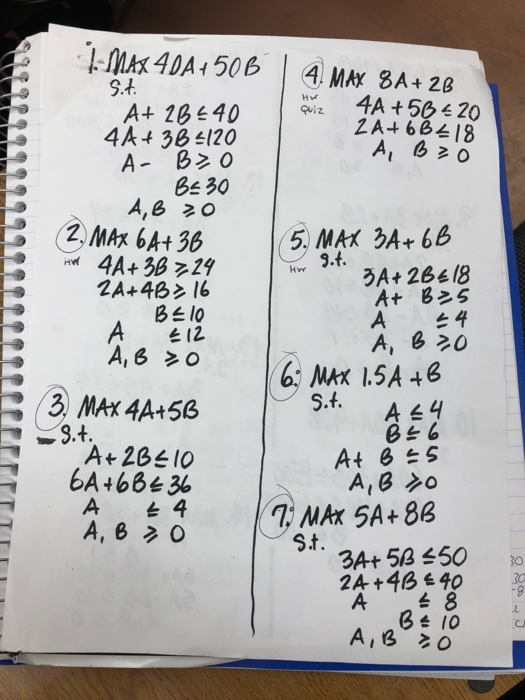 1. MAX 40A + 50B
S.t.
A + 2B ≤ 40
4A + 3B ≤ 120
A - B ≥ 0
B ≤ 30
A, B ≥ 0
2. MAX 6A + 3B
HW
4A + 3B ≥ 24
2A + 4B ≥ 16
B ≤ 10
A ≤ 12
A, B ≥ 0
3. MAX 4A + 5B
S.t.
A + 2B ≤ 10
6A + 6B ≤ 36
A ≤ 4
A, B ≥ 0
4. MAX 8A + 2B
HW
Quiz
4A + 5B ≤ 20
2A + 6B ≤ 18
A, B ≥ 0
5. MAX 3A + 6B
HW
S.t.
3A + 2B ≤ 18
A + B ≥ 5
A ≤ 4
A, B ≥ 0
6. MAX 1.5A + B
S.t.
A ≤ 4
B ≤ 6
A + B ≤ 5
A, B ≥ 0
7. MAX 5A + 8B
S.t.
3A + 5B ≤ 50
2A + 4B ≤ 40
A ≤ 8
B ≤ 10
A, B ≥ 0